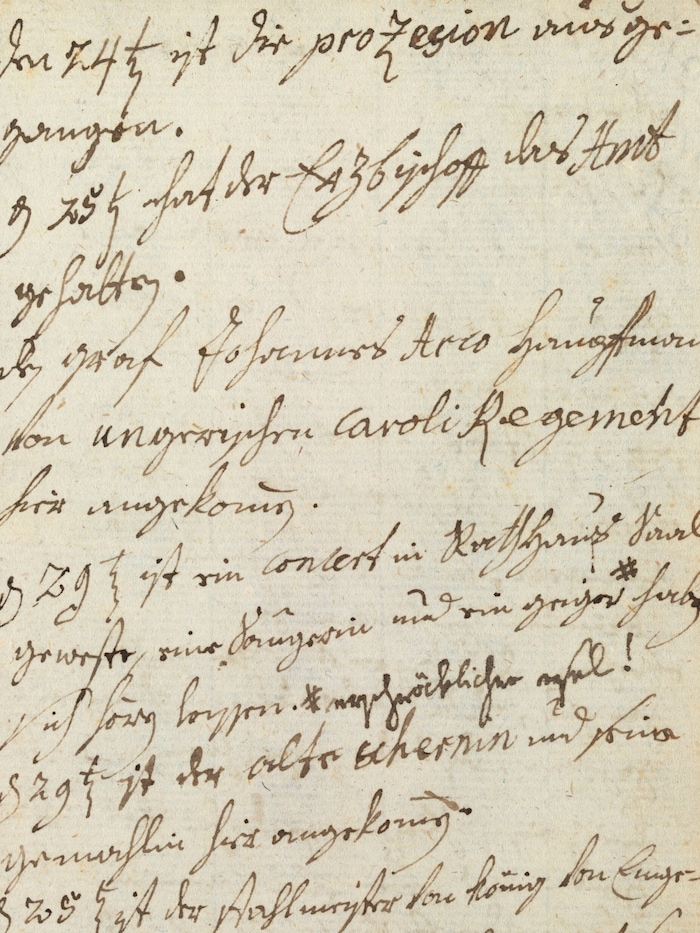 den 24t ist die prozesion ausge=
gangen.
d 25t hat der Erzbischoff das Amt
gehalten.
den graf Johannes Arco Haupffman
von ungerischen Caroli Regement
hier angekomen.
d 29t ist ein concert in Rathhaus Saal
geweste, eine Sängerin und ein geiger* haben
sich hören lassen. * erschröcklicher esel!
d 29t ist der alte und seine
gemahlin hier angekomen.
d 25t ist der stahlmeister von könig von Enge=